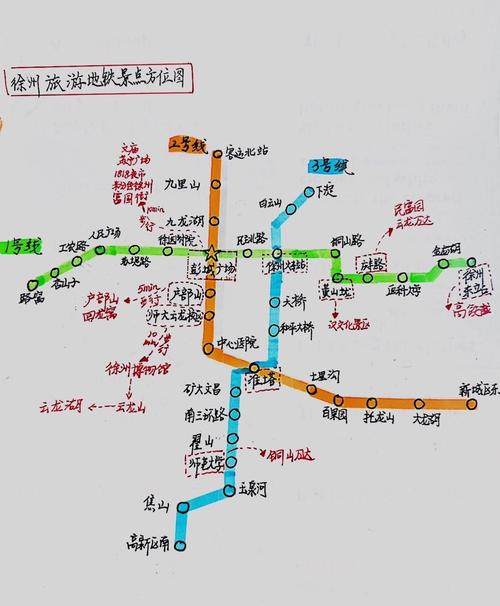 徐州旅游地铁景点方位图
2号线
客运北站
九里山
九龙湖
3号线
下淀
白云山
文庙
苏宁广场
1818夜市
富国街
步行
1号线
路窝
杏山子
工农路
人民广场
苏堤路
徐医附院
彭城广场
民主路
徐州火车站
铜山路
黄山垅
庆丰路
医科大学
金龙湖
徐州
东站
高铁站
民富园
云龙万达
汉文化景区
户部山
师大云龙校区
5min
步行
户部山
回龙窝
步行
徐州博物馆
云龙山
云龙湖
中心医院
天桥
和平大桥
淮塔
七里沟
百果园
托龙山
大龙湖
新城区东
矿大文昌
南三环路
翟山
师范大学
铜山万达
玉泉河
焦山
高新区南